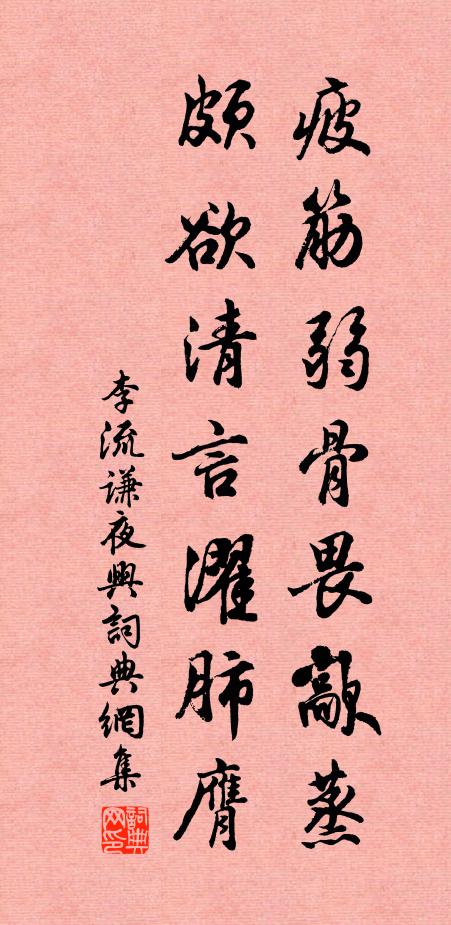 疲筋弱骨畏歊蒸
頗欲清言濯肺膺
李流謙夜興詞典網集
詞典网印